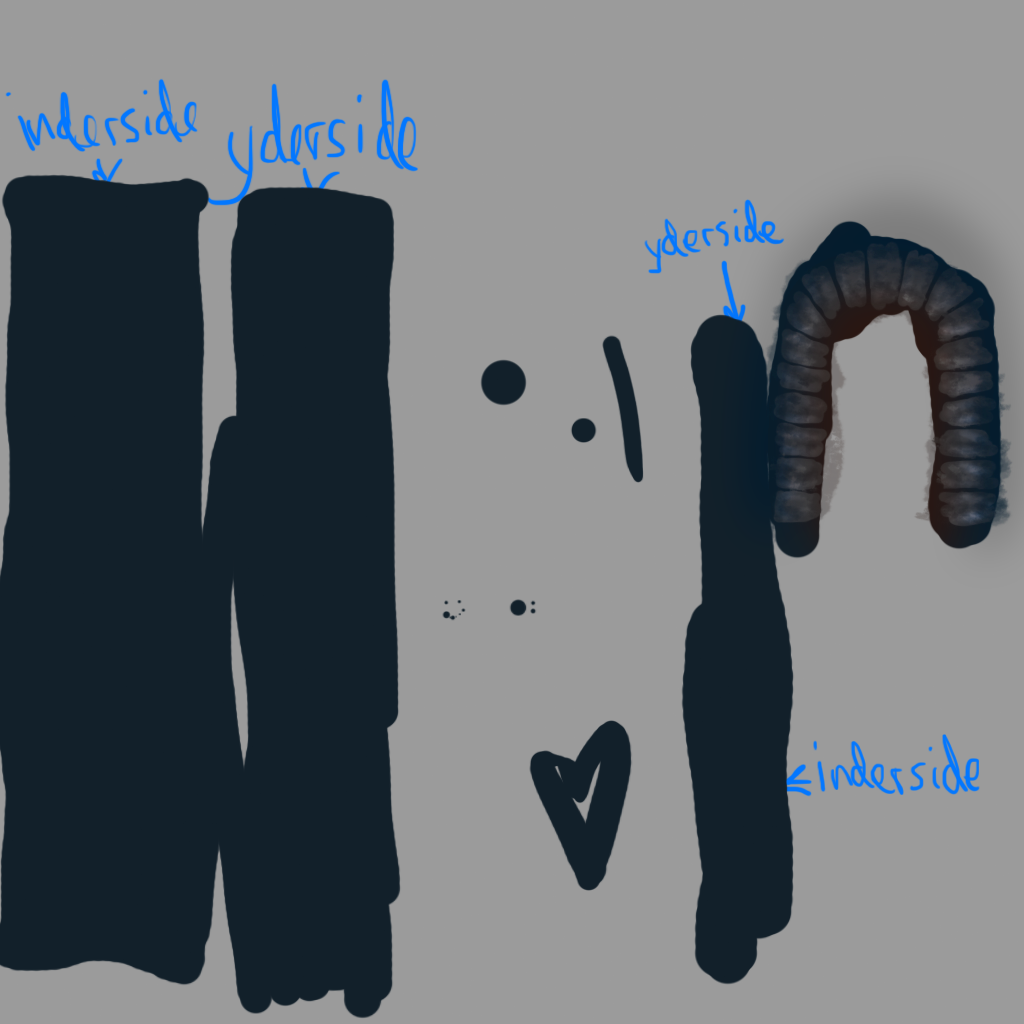 inderside
yderside
yderside
inderside